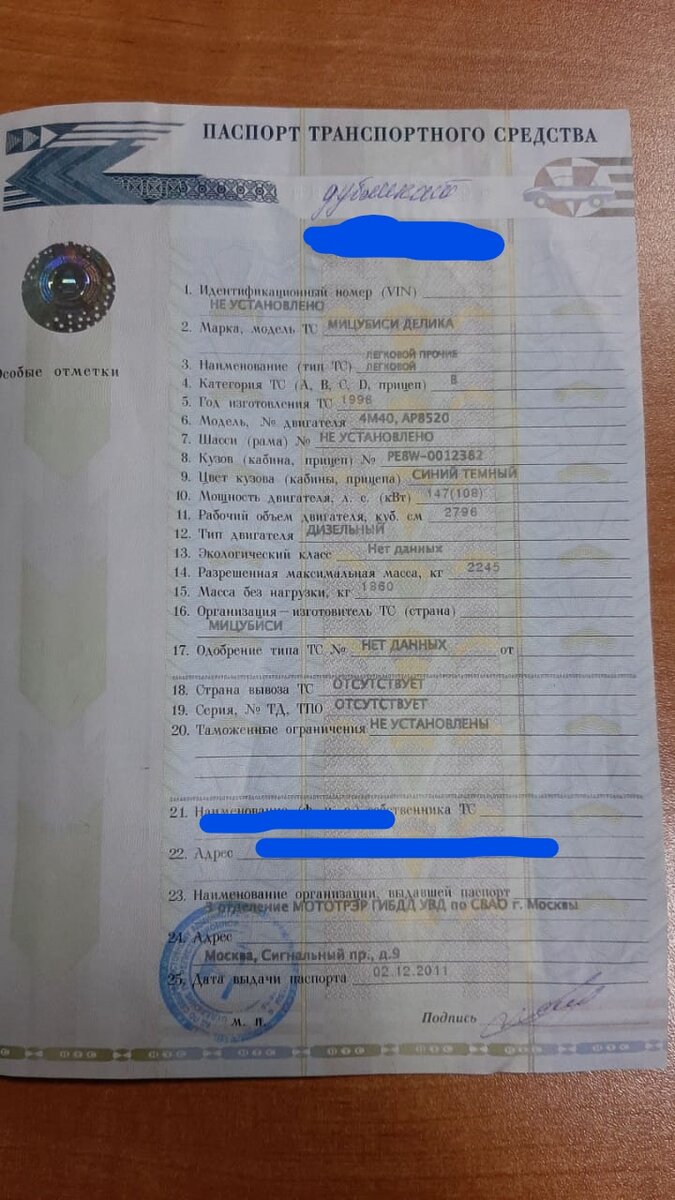 ПАСПОРТ ТРАНСПОРТНОГО СРЕДСТВА
дубликат
Особые отметки
1. Идентификационный номер (VIN)
НЕ УСТАНОВЛЕНО
2. Марка, модель ТС МИЦУБИСИ ДЕЛИКА
ЛЕГКОВОЙ ПРОЧИЕ
3. Наименование (тип ТС) ЛЕГКОВОЙ
4. Категория ТС (A, B, C, D, прицеп) B
5. Год изготовления ТС 1996
6. Модель, № двигателя 4M40, AP8520
7. Шасси (рама) № НЕ УСТАНОВЛЕНО
8. Кузов (кабина, прицеп) № PE8W-0012382
9. Цвет кузова (кабины, прицепа) СИНИЙ ТЕМНЫЙ
10. Мощность двигателя, л. с. (кВт) 147(108)
11. Рабочий объем двигателя, куб. см 2796
12. Тип двигателя ДИЗЕЛЬНЫЙ
13. Экологический класс Нет данных
14. Разрешенная максимальная масса, кг 2245
15. Масса без нагрузки, кг 1860
16. Организация–изготовитель ТС (страна)
МИЦУБИСИ
17. Одобрение типа ТС № НЕТ ДАННЫХ от
18. Страна вывоза ТС ОТСУТСТВУЕТ
19. Серия, № ТД, ТПО ОТСУТСТВУЕТ
20. Таможенные ограничения НЕ УСТАНОВЛЕНЫ
21. Наименование собственника ТС
22. Адрес
23. Наименование организации, выдавшей паспорт
3 отделение МОТОТРЭР ГИБДД УВД по СВАО г. Москвы
24. Адрес
Москва, Сигнальный пр., д.9
25. Дата выдачи паспорта 02.12.2011
М. П.
Подпись